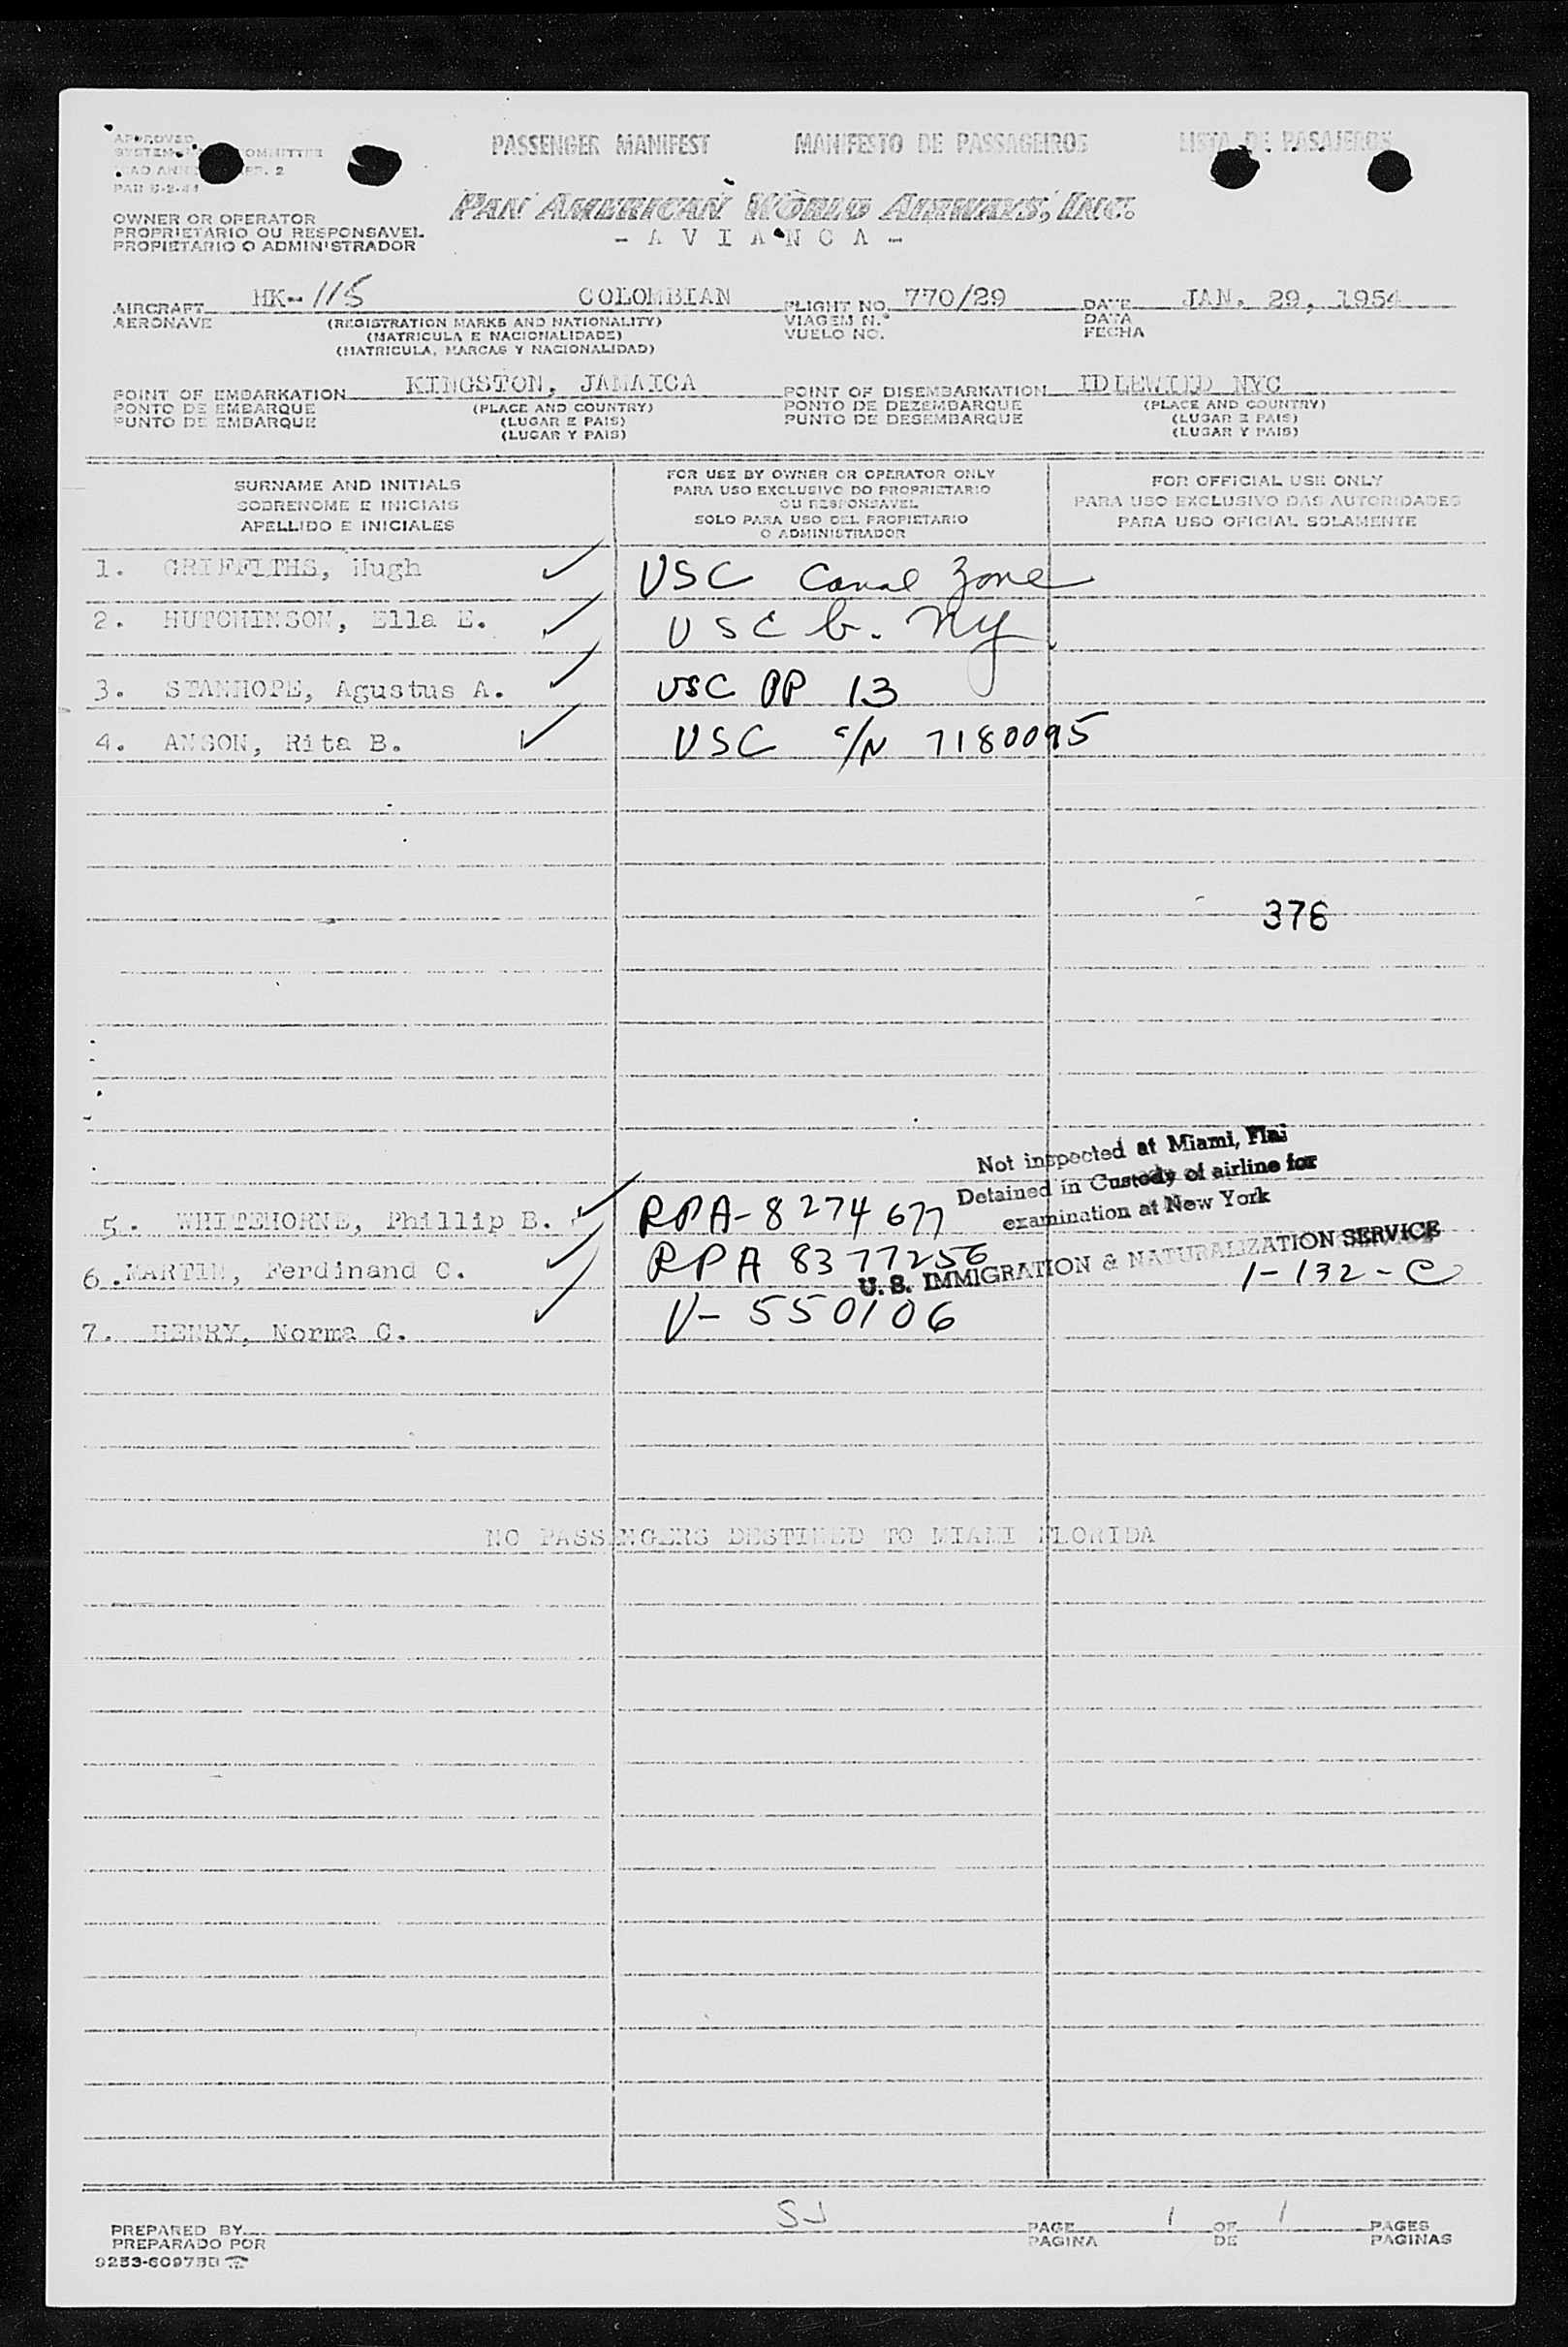 APPROVED
PAB 5-2-44
PASSENGER MANIFEST MANIFESTO DE PASSAGEIROS LISTA DE PASAJEROS
PAN AMERICAN WORLD AIRWAYS, INC.
- A V I A N C A -
OWNER OR OPERATOR
PROPRIETARIO OU RESPONSAVEL
PROPIETARIO O ADMINISTRADOR
AIRCRAFT HK-115 COLOMBIAN FLIGHT NO. 770/29 DATE JAN. 29, 1954
AERONAVE (REGISTRATION MARKS AND NATIONALITY) VIAGEM N.° DATA
(MATRICULA E NACIONALIDADE) VUELO NO. FECHA
(MATRICULA, MARCAS Y NACIONALIDAD)
POINT OF EMBARKATION KINGSTON, JAMAICA POINT OF DISEMBARKATION IDLEWILD NYC
PONTO DE EMBARQUE (PLACE AND COUNTRY) PONTO DE DEZEMBARQUE (PLACE AND COUNTRY)
PUNTO DE EMBARQUE (LUGAR E PAIS) PUNTO DE DESEMBARQUE (LUGAR E PAIS)
(LUGAR Y PAIS) (LUGAR Y PAIS)
SURNAME AND INITIALS
SOBRENOME E INICIAIS
APELLIDO E INICIALES
FOR USE BY OWNER OR OPERATOR ONLY
PARA USO EXCLUSIVO DO PROPRIETARIO
OU RESPONSAVEL
SOLO PARA USO DEL PROPIETARIO
O ADMINISTRADOR
FOR OFFICIAL USE ONLY
PARA USO EXCLUSIVO DAS AUTORIDADES
PARA USO OFICIAL SOLAMENTE
1. GRIFFITHS, Hugh ✓ USC Canal Zone
2. HUTCHINSON, Ella E. ✓ USC b. NY
3. STANHOPE, Agustus A. ✓ USC PP 13
4. ANSON, Rita B. ✓ USC c/N 7180095
376
Not inspected at Miami, Fla
Detained in Custody of airline for
examination at New York
U. S. IMMIGRATION & NATURALIZATION SERVICE
5. WHITEHORNE, Phillip B. ✓ RPA-8274677
6. MARTIN, Ferdinand C. ✓ RPA 8377256 1-132-C
7. HENRY, Norma C. ✓ V-550106
NO PASSENGERS DESTINED TO MIAMI FLORIDA
PREPARED BY SJ PAGE 1 OF 1 PAGES
PREPARADO POR PAGINA DE PAGINAS